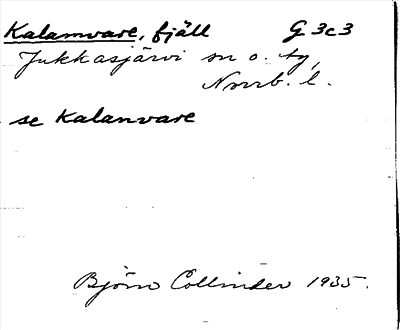 Kalamvare, fjäll G 3c3
Jukkasjärvi sn o. tg,
Norrb. l.
se Kalanvare
Björn Collinder 1935.